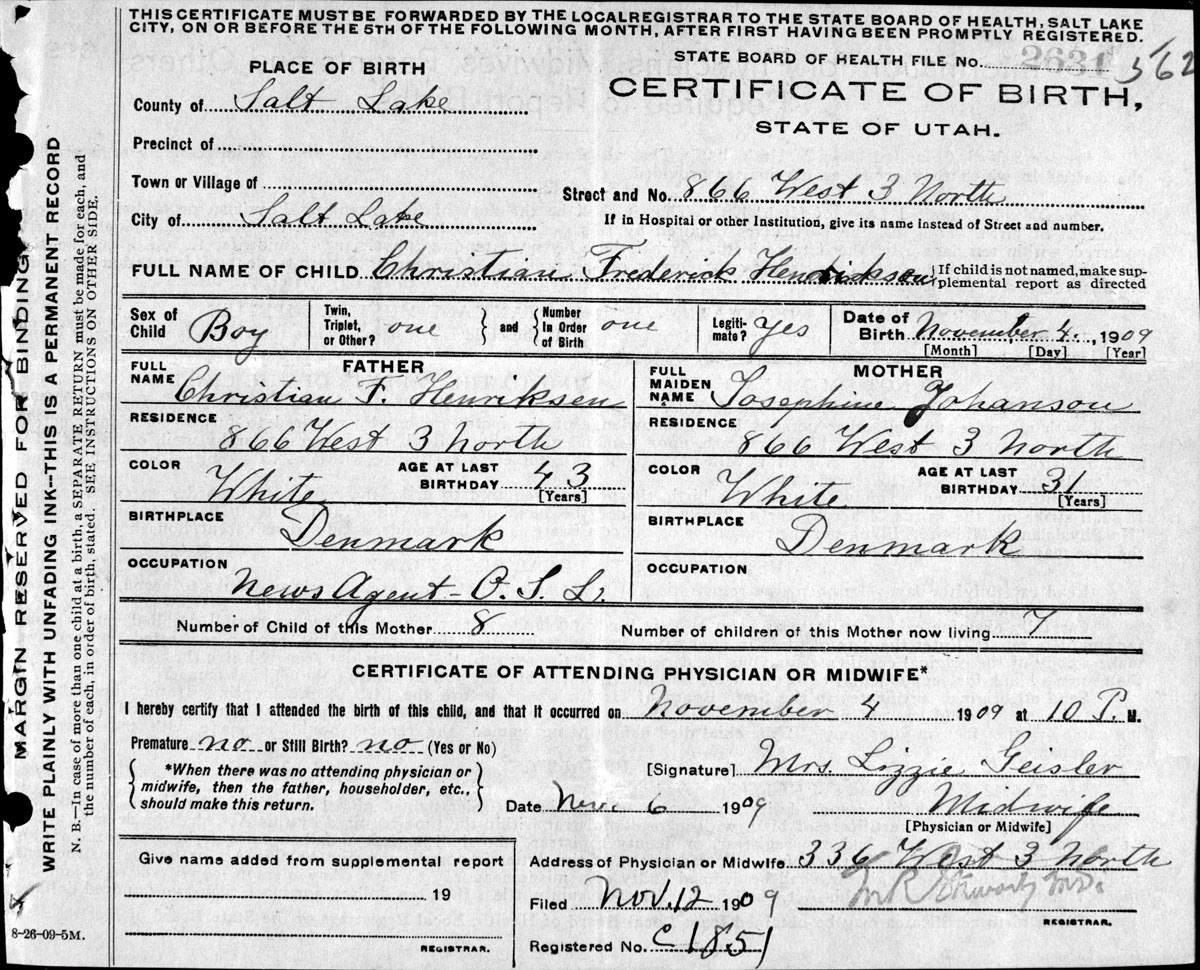 THIS CERTIFICATE MUST BE FORWARDED BY THE LOCAL REGISTRAR TO THE STATE BOARD OF HEALTH, SALT LAKE
CITY, ON OR BEFORE THE 5TH OF THE FOLLOWING MONTH, AFTER FIRST HAVING BEEN PROMPTLY REGISTERED.
STATE BOARD OF HEALTH FILE No. 562
PLACE OF BIRTH
CERTIFICATE OF BIRTH,
STATE OF UTAH.
County of Salt Lake
Precinct of
Town or Village of
Street and No. 866 West 3 North
City of Salt Lake
If in Hospital or other Institution, give its name instead of Street and number.
FULL NAME OF CHILD Christian Frederick Henriksen
If child is not named, make sup-
plemental report as directed
Sex of Child Boy
Twin, Triplet, or Other? one
and
Number in Order of Birth one
Legiti-mate? Yes
Date of Birth November 4., 1909
[Month] [Day] [Year]
FATHER
FULL NAME Christian F. Henriksen
RESIDENCE
866 West 3 North
COLOR White
AGE AT LAST BIRTHDAY 43
[Years]
BIRTHPLACE
Denmark
OCCUPATION
News Agent - O. S. L.
MOTHER
FULL MAIDEN NAME Josephine Johanson
RESIDENCE
866 West 3 North
COLOR White
AGE AT LAST BIRTHDAY 31
[Years]
BIRTHPLACE
Denmark
OCCUPATION
Number of Child of this Mother 8
Number of children of this Mother now living 7
CERTIFICATE OF ATTENDING PHYSICIAN OR MIDWIFE*
I hereby certify that I attended the birth of this child, and that it occurred on November 4 1909 at 10 P. M.
Premature no or Still Birth? no (Yes or No)
*When there was no attending physician or
midwife, then the father, householder, etc.,
should make this return.
[Signature] Mrs. Lizzie Geisler
Date Nov. 6 1909
Midwife
[Physician or Midwife]
Give name added from supplemental report
19
REGISTRAR.
Address of Physician or Midwife 336 West 3 North
Filed Nov. 12 1909
REGISTRAR.
Registered No. C1851
8-26-09-5M.
MARGIN RESERVED FOR BINDING
WRITE PLAINLY WITH UNFADING INK--THIS IS A PERMANENT RECORD
N. B.—In case of more than one child at a birth, a SEPARATE RETURN must be made for each, and
the number of each, in order of birth, stated. SEE INSTRUCTIONS ON OTHER SIDE.